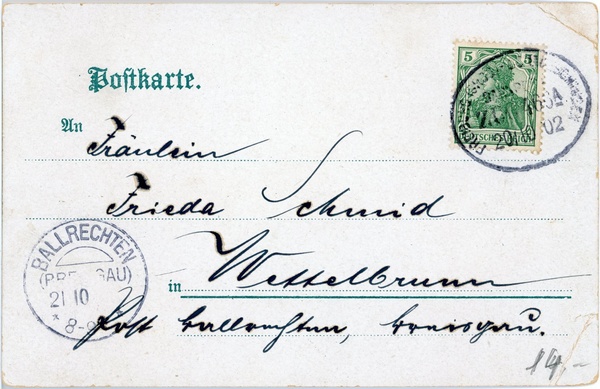 Postkarte.
5 5
DEUTSCHES REICH
20 02
An
Fräulein
Frieda Schmid
in Wettelbrunn
Post Ballrechten, Breisgau.
BALLRECHTEN
(BREISGAU)
21 10
* 8-9
14,-